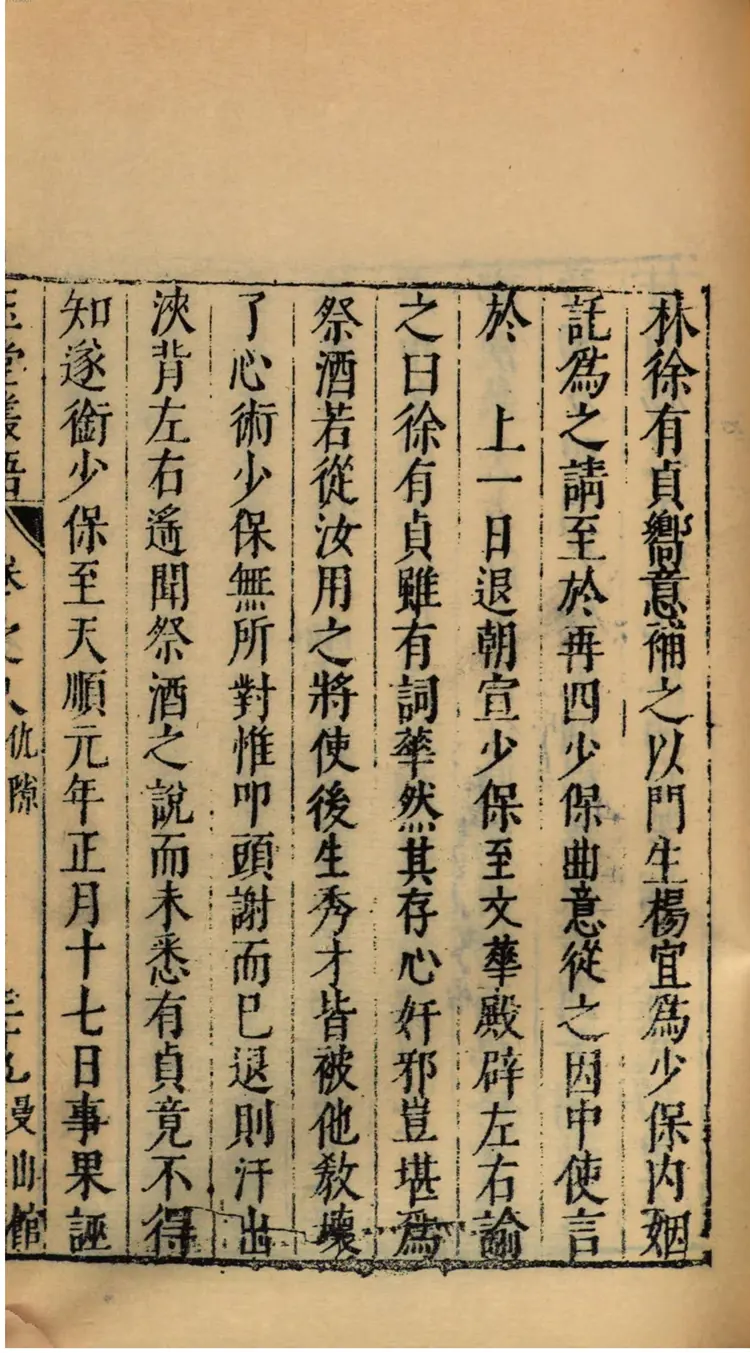 林徐有貞嚮意補之以門生楊宜爲少保内姻
託爲之請至於再四少保曲意從之因中使言
於 上一日退朝宣少保至文華殿辟左右諭
之曰徐有貞雖有詞華然其存心奸邪豈堪爲
祭酒若從汝用之將使後生秀才皆被他教壞
了心術少保無所對惟叩頭謝而已退則汗出
浹背左右遙聞祭酒之說而未悉有貞竟不得
知遂銜少保至天順元年正月十七日事果誣
玉堂叢語 卷之八 仇隙 三十九 曼山館